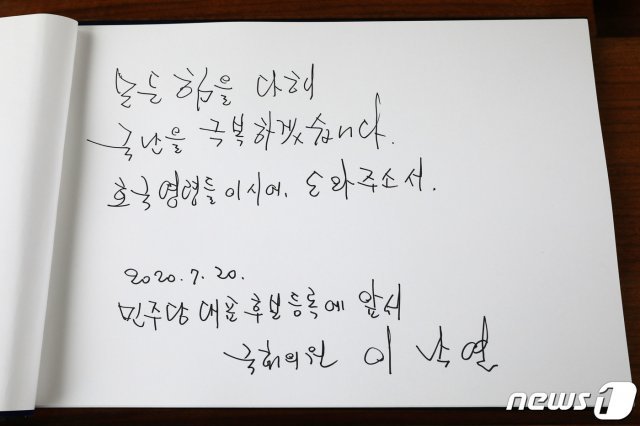 모든 힘을 다해
국난을 극복하겠습니다.
호국영령들이시여, 도와주소서.
2020.7.20.
민주당 대표 후보등록에 앞서
국회의원 이낙연
news1